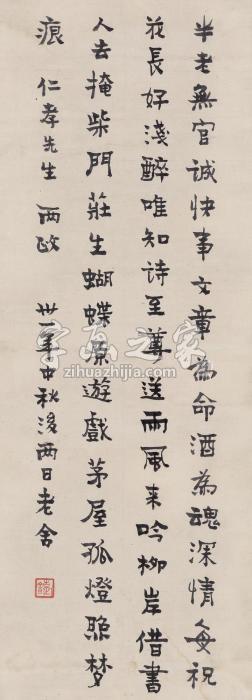 半老無官誠快事文章為命酒為魂深情每祝
花長好淺醉唯知诗至尊送雨風来吟柳岸借書
人去掩柴門莊生蝴蝶原遊戲茅屋孤燈照梦
痕 仁孝先生 两政 卅一年中秋後两日老舍
字画之家
www.zihuazhijia.com